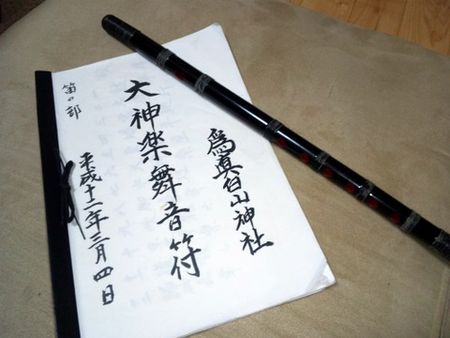 爲真白山神社
大神楽舞音符
平成十二年三月四日
笛の部